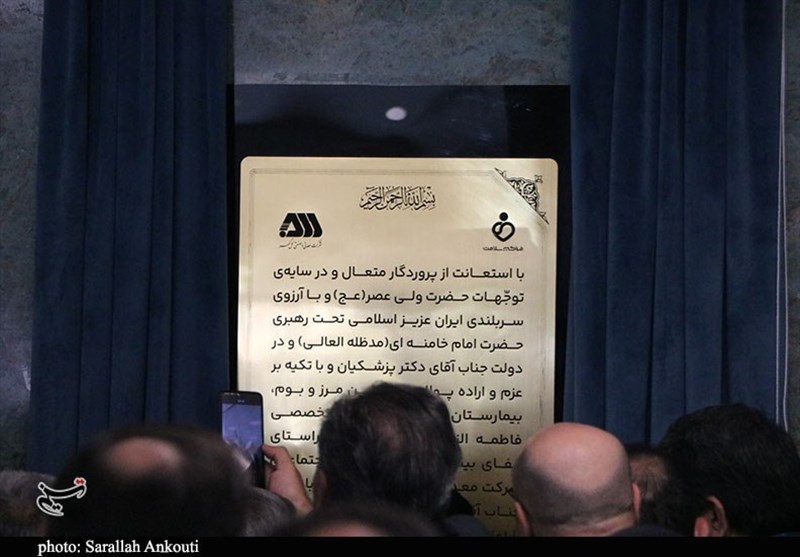 بسم الله الرحمن الرحیم
با استعانت از پروردگار متعال و در سایه‌ی
توجّهات حضرت ولی عصر(عج) و با آرزوی
سربلندی ایران عزیز اسلامی تحت رهبری
حضرت امام خامنه ای(مدظله العالی) و در
دولت جناب آقای دکتر پزشکیان و با تکیه بر
عزم و اراده مرز و بوم،
بیمارستان
فاطمه
شرکت
جناب
تسنیم
photo: Sarallah Ankouti